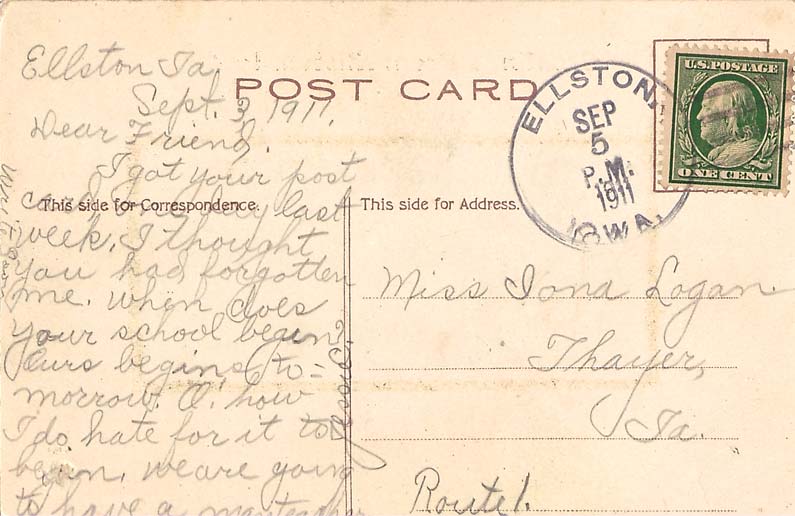 Ellston Ia
Sept. 3, 1911.
Dear Friend,
I got your post
card day last
week. I thought
you had forgotten
me. when does
your school begin?
Ours begins to-
morrow. O, how
I do hate for it to
begin. we are going
to have a
POST CARD
This side for Correspondence.
This side for Address.
ELLSTON,
SEP
5
P.M.
1911
IOWA.
U.S. POSTAGE
ONE CENT
Miss Iona Logan.
Thayer,
Ia.
Route 1.